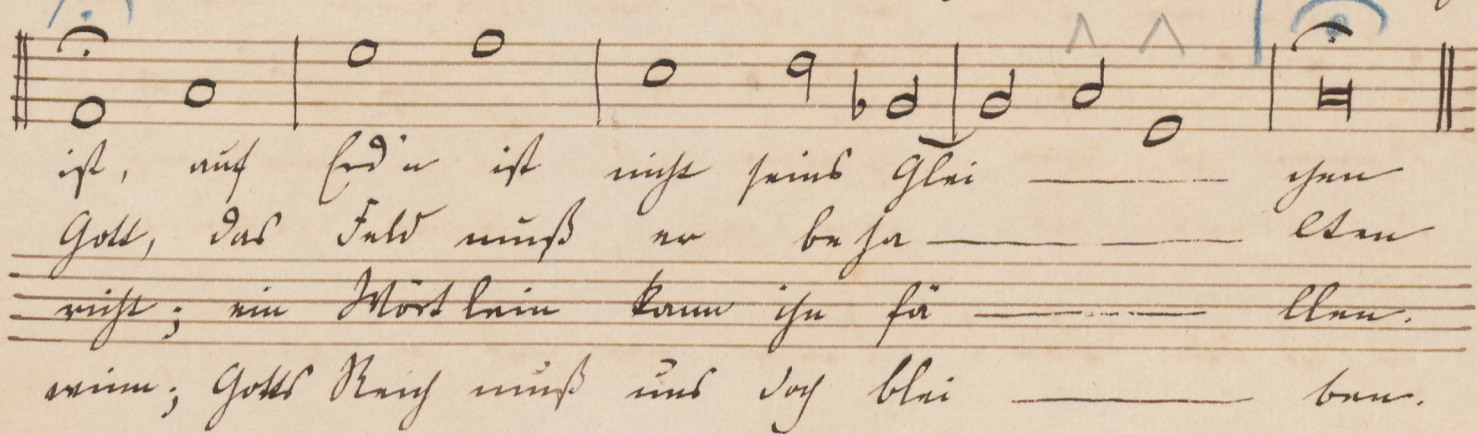 ist, auf Erd'n ist nicht seins Glei — chen
Gott, das Feld muß er beha — — lten
richt; ein Wörtlein kann ihn fä — llen.
winn; Gotts Reich muß uns doch blei — ben.